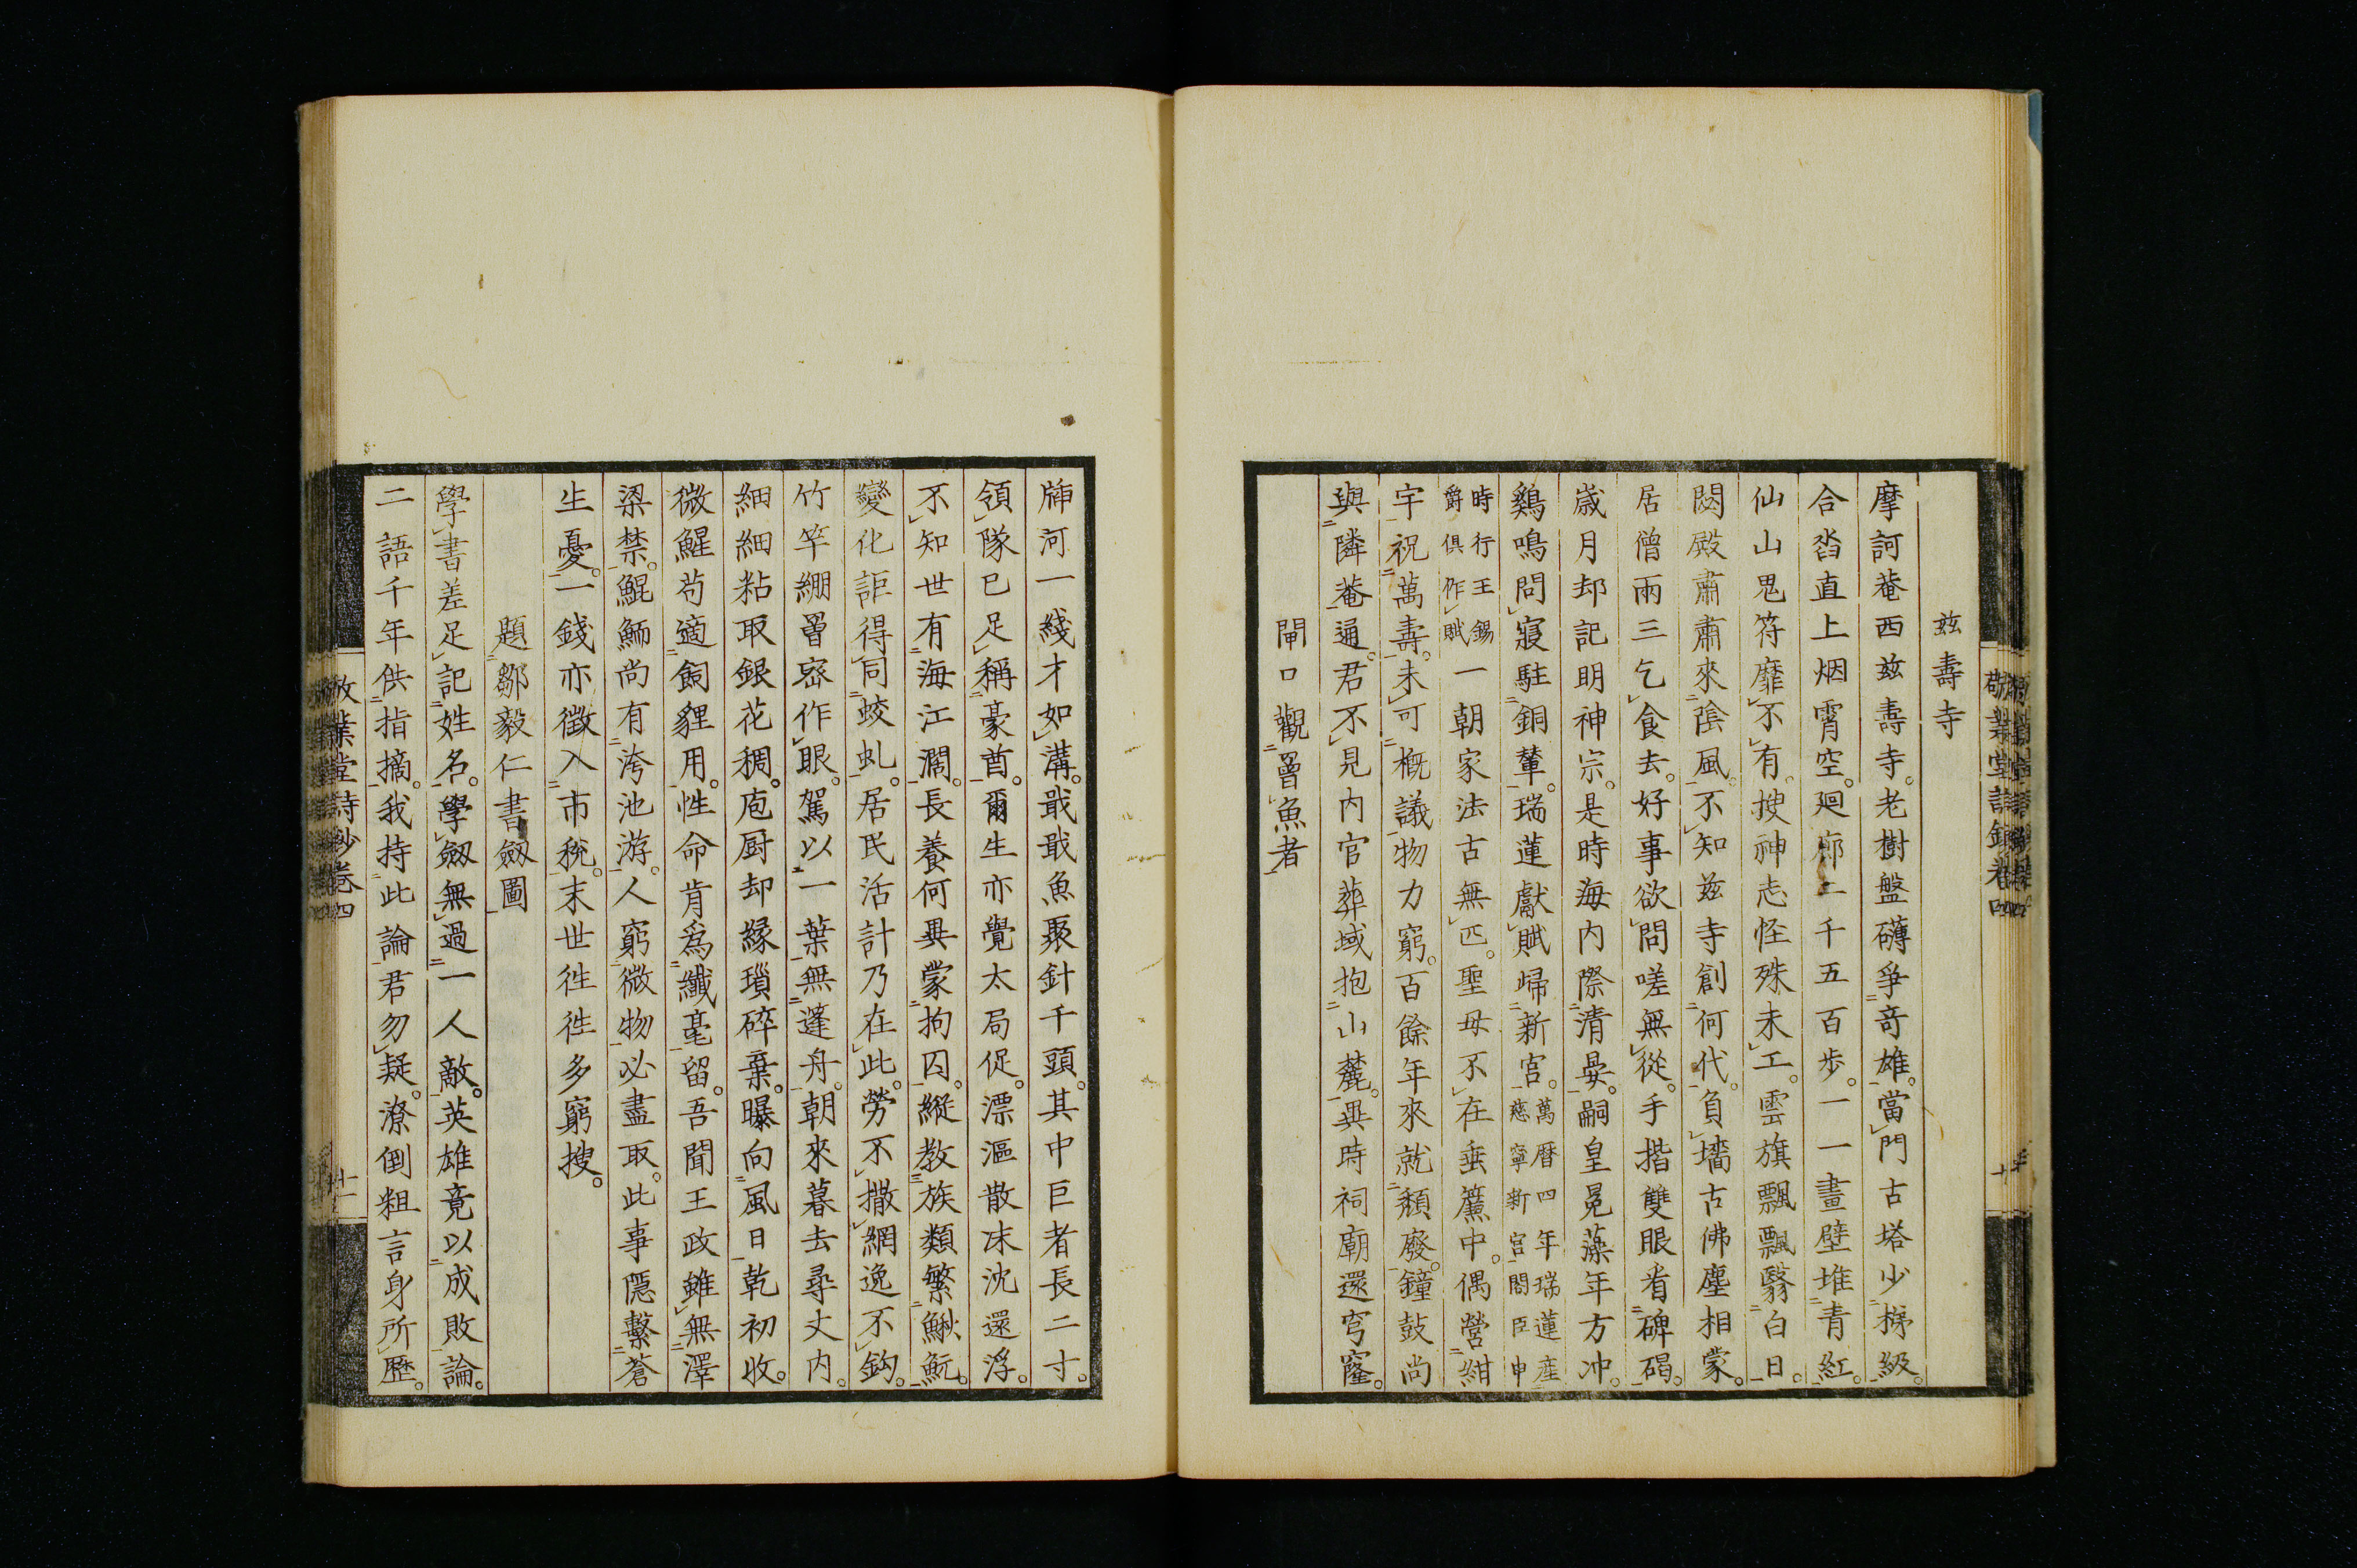 兹壽寺
摩訶菴西兹壽寺。老樹盤礴爭奇雄。當門古塔少梯級。
合沓直上烟霄空。廻廊二千五百步。一一畫壁堆青紅。
仙山鬼符靡不有。捜神志怪殊未工。雲旗飄飄翳白日。
閟殿肅肅來陰風。不知兹寺創何代。負墻古佛塵相蒙。
居僧兩三乞食去。好事欲問嗟無從。手揩雙眼看碑碣。
歳月却記明神宗。是時海内際清晏。嗣皇冕藻年方冲。
鷄鳴問寢駐銅輦。瑞蓮獻賦歸新宫。萬暦四年瑞蓮産慈寧新宫閣臣申
時行王錫爵俱作賦一朝家法古無匹。聖母不在垂簾中。偶營紺
宇祝萬壽。未可概議物力窮。百餘年來就頽廢。鐘鼓尚
與隣菴通。君不見内官葬域抱山麓。異時祠廟還穹窿。
閘口觀罾魚者
牐河一綫才如溝。戢戢魚聚針千頭。其中巨者長二寸。
領隊已足稱豪酋。爾生亦覺太局促。漂漚散沫沈還浮。
不知世有海江濶。長養何異蒙拘囚。縱教族類繁鰍魭。
變化詎得同蛟虬。居民活計乃在此。勞不撒網逸不鈎。
竹竿綳罾宻作眼。駕以一葉無蓬舟。朝來暮去尋丈内。
細細粘取銀花稠。庖厨却緣瑣碎棄。曝向風日乾初收。
微鯹苟適飼貍用。性命肯爲纖毫留。吾聞王政雖無澤
梁禁。鯤鮞尚有洿池游。人窮微物必盡取。此事隱繫蒼
生憂。一錢亦徵入市稅。末世徃徃多窮搜。
題鄒毅仁書劔圖
學書差足記姓名。學劔無過一人敵。英雄竟以成敗論。
二語千年供指摘。我持此論君勿疑。潦倒粗言身所歷。
敬業堂詩鈔卷四
十一